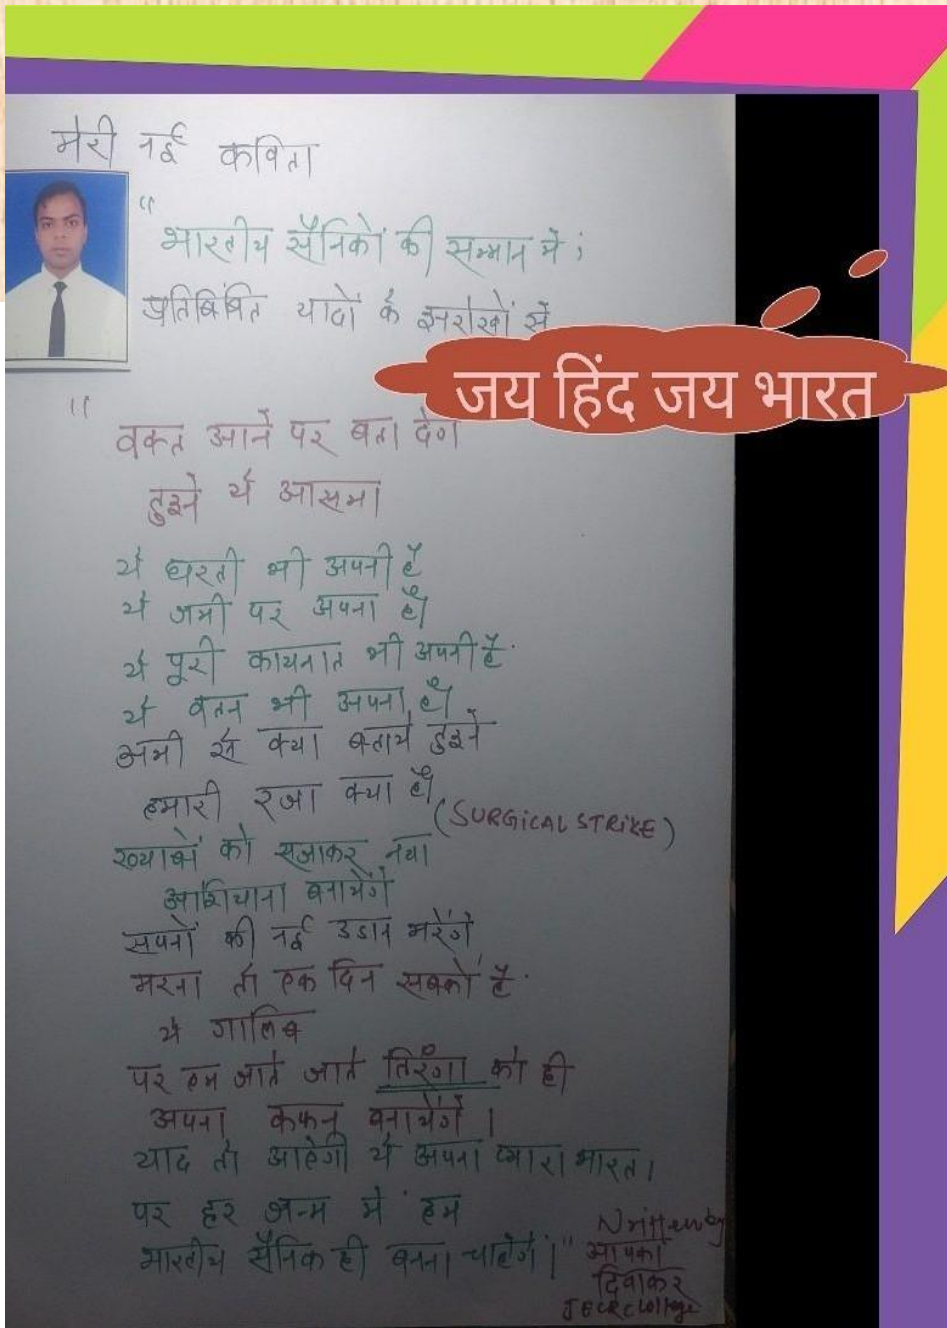 मेरी नई कविता
"भारतीय सैनिकों की सम्मान में ;
प्रतिबिंबित यादों के झरोखों से
जय हिंद जय भारत
"वक्त आने पर बता देंगे
तुझे ये आसमा
ये धरती भी अपनी है
ये जमी पर अपना है
ये पूरी कायनात भी अपनी है
ये वतन भी अपना है
अभी से क्या बताये तुझे
हमारी रजा क्या है
(SURGICAL STRIKE)
ख्याबों को सजाकर नया
आशियाना बनायेंगे
सपनों की नई उडान भरेंगे
मरना तो एक दिन सबको है
ये गालिब
पर हम जाते जाते तिरंगा को ही
अपना कफन बनायेंगे ।
याद तो आएगी ये अपना प्यारा भारत ।
पर हर जन्म में हम
भारतीय सैनिक ही बनना चाहेंगे ।"
Written by
आपका
दिवाकर
JECRC College